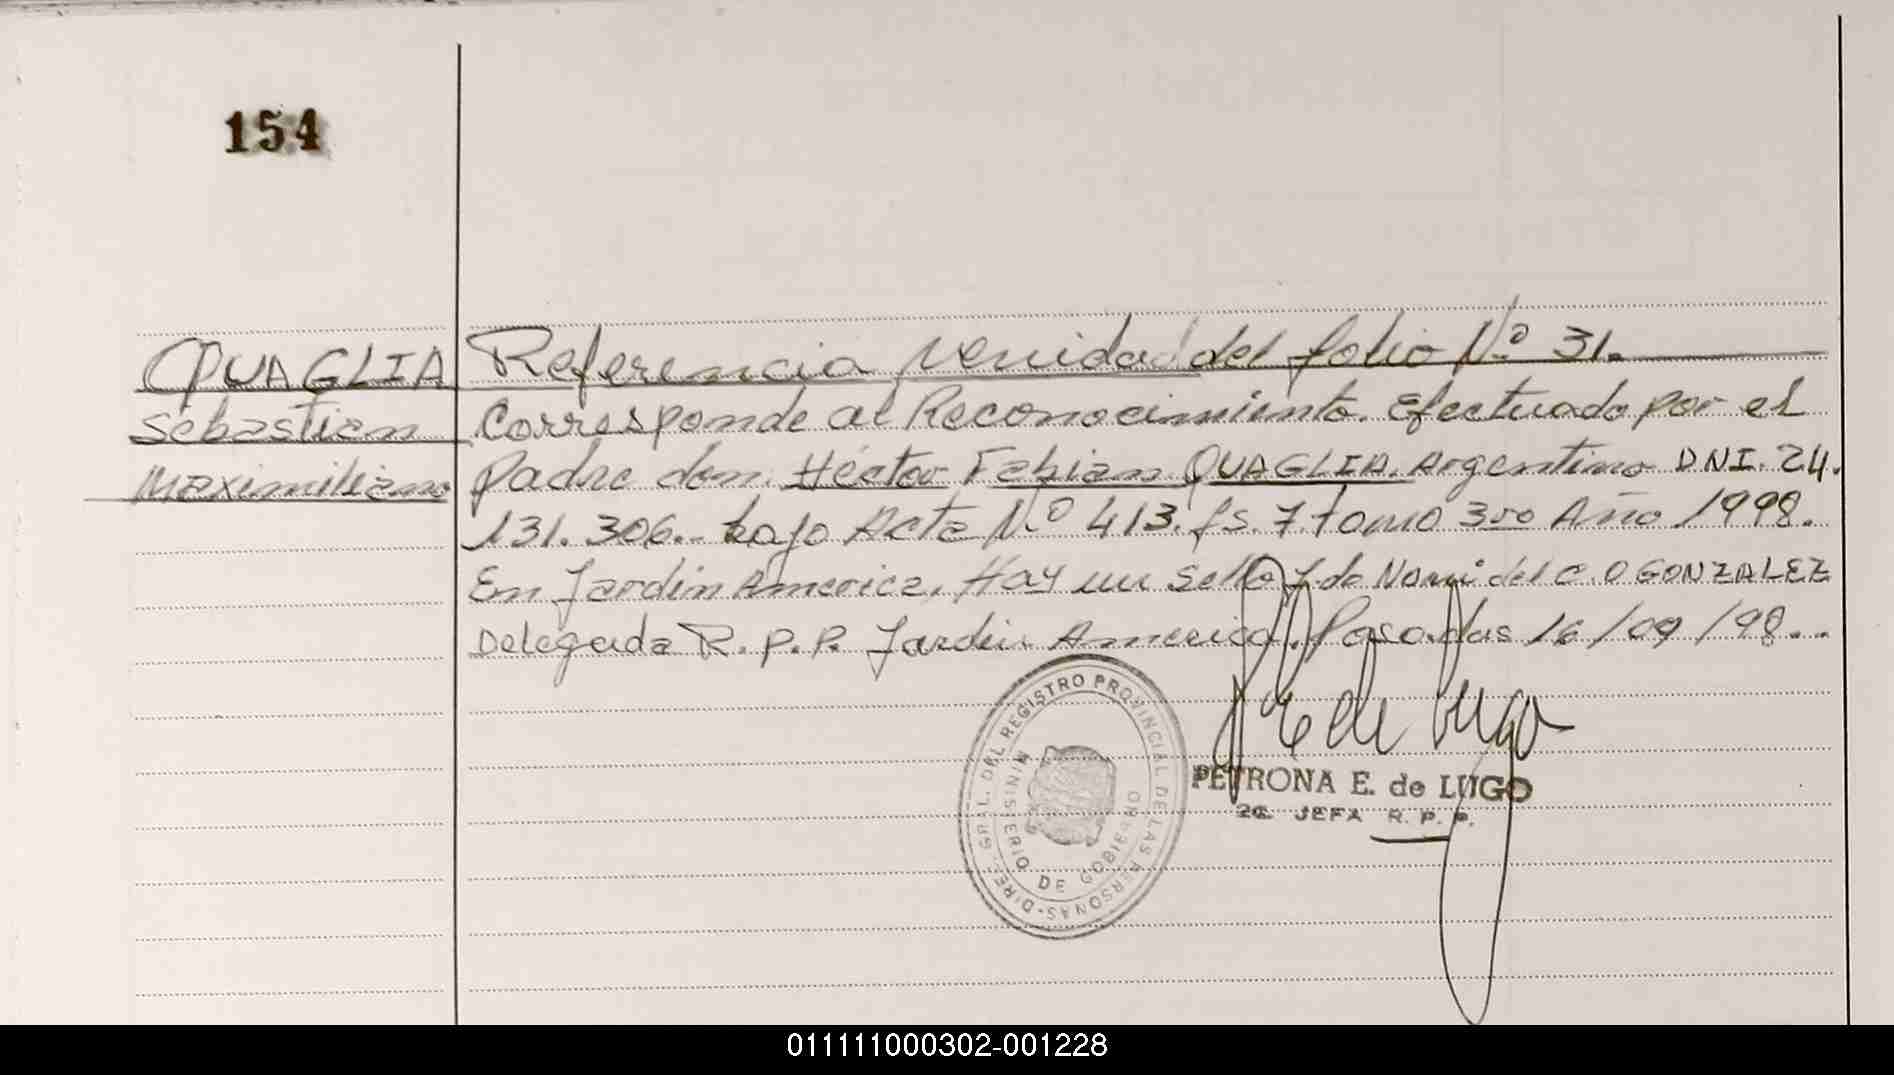 154
QUAGLIA
Sebastian
Maximiliano
Referencia venida del folio Nº 31.
Corresponde al Reconocimiento. Efectuado por el
padre don Héctor Fabian QUAGLIA. Argentino DNI. 24.
131.306.- bajo Acta Nº 413. fs. 7. tomo 3ro Año 1998.
En Jardin America. Hay un Sello y de C. O GONZALEZ
Delegada R. P. P. Jardin America. Posadas 16/09/98..
DIRE. GRAL. DEL REGISTRO PROVINCIAL DE LAS PERSONAS-
MINISTERIO DE GOBIERNO
PETRONA E. de LUGO
JEFA R. P. P.
011111000302-001228